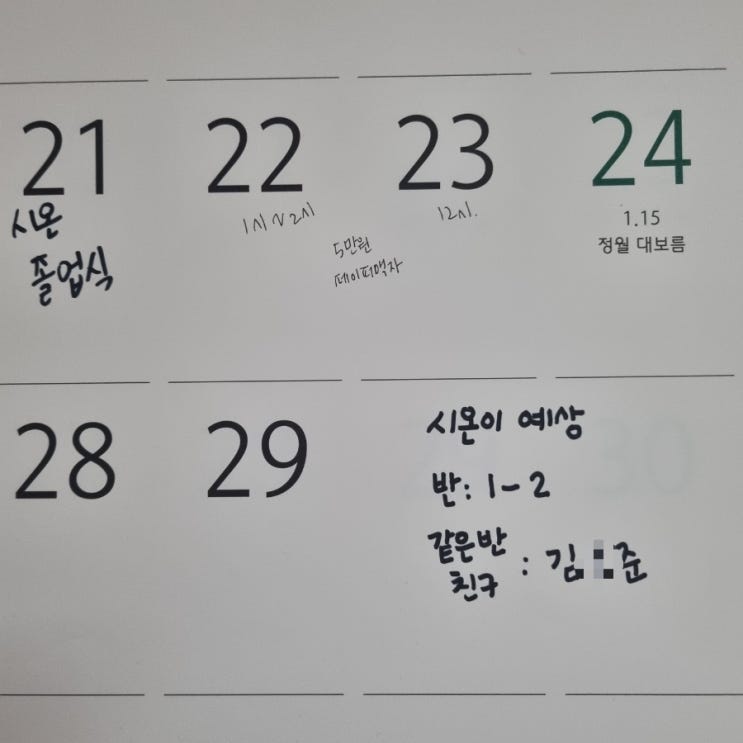 21
시온
졸업식
22
1시~2시
5만원
페이퍼백자
23
12시.
24
1.15
정월 대보름
28
29
시온이 예상
반: 1-2
같은반
친구 : 김 준